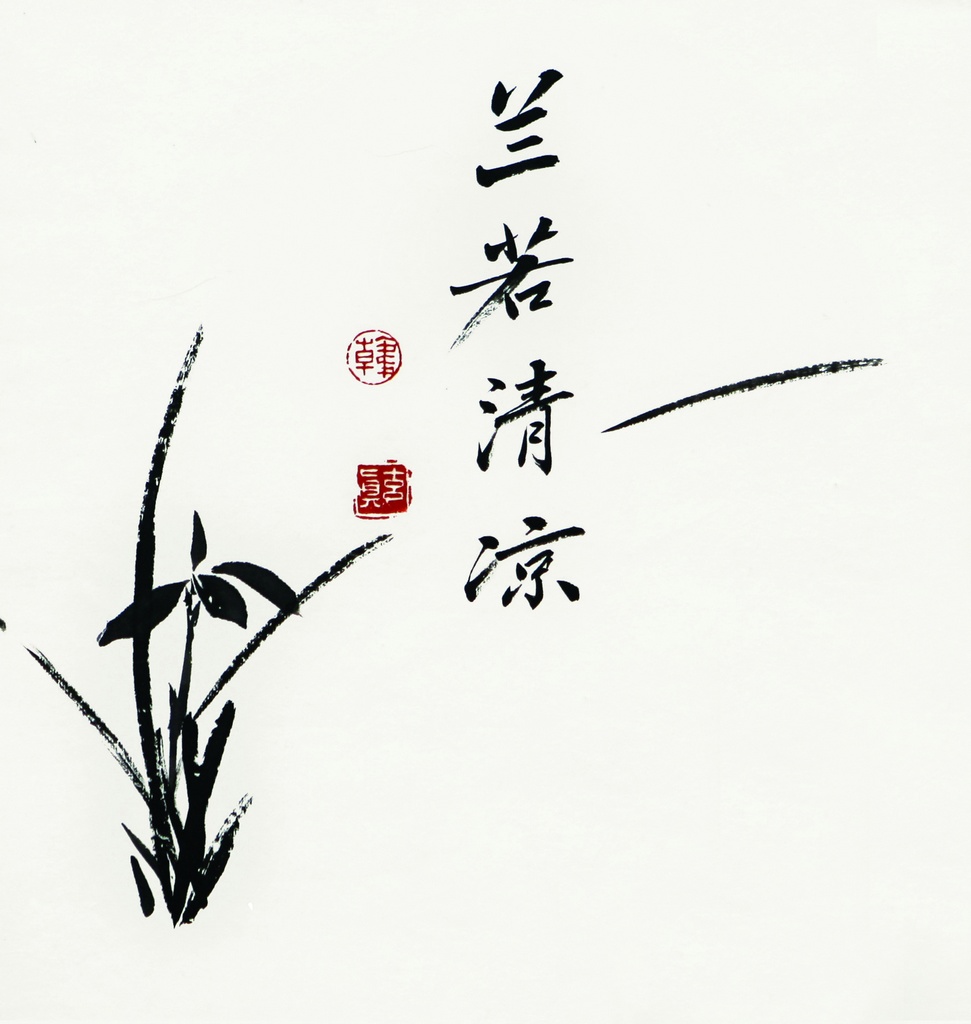 兰若清凉
韩